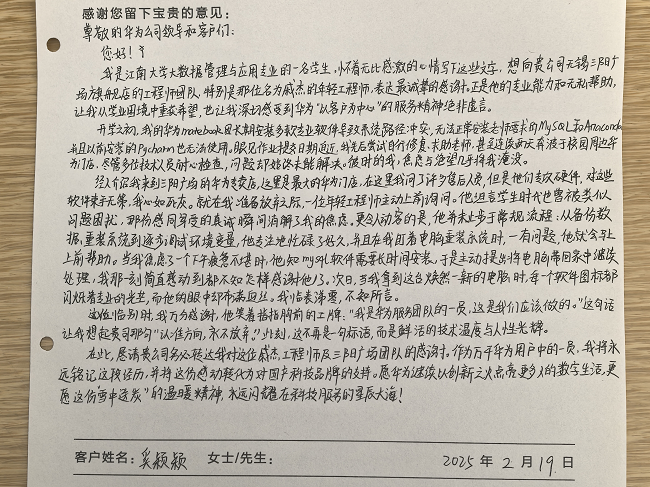 感谢您留下宝贵的意见：
尊敬的华为公司领导和客户们：
您好！
我是江南大学大数据管理与应用专业的一名学生，怀着无比感激的心情写下这些文字，想向贵公司无锡三阳广
场旗舰店的工程师团队，特别是那位名为臧杰的年轻工程师，表达最诚挚的感谢，正是他的专业能力和无私帮助，
让我从学业困境中重获希望，也让我深切感受到华为“以客户为中心”的服务精神绝非虚言。
开学之初，我的华为notebook因长期安装多款专业软件导致系统路径冲突，无法正常安装老师要求的MySQL和Anaconda
并且以前安装的Pycharm也无法使用。眼见作业提交日期临近，我先后尝试自行修复、求助老师，甚至连续两天奔波于校园周边华
为门店，尽管多位技术人员耐心检查，问题却始终未能解决。彼时的我，焦虑与绝望几乎将我淹没。
经人介绍我来到三阳广场的华为专卖店，这里是最大的华为门店，在这里我问了许多售后人员，但是他们专攻硬件，对这些
软件束手无策，我心如死灰。就在我准备放弃之际，一位年轻工程师主动上前询问。他坦言学生时代也曾被类似
问题困扰，那份感同身受的真诚瞬间消解了我的焦虑。更令人动容的是，他并未止步于常规流程：从备份数
据，重装系统到逐步调试环境变量，他专注地忙碌了好久，并且在我盯着电脑重装系统时，一有问题，他就会马上
上前帮助。当我焦虑了一个下午疲惫不堪时，他知mysql软件需要长时间安装，于是主动提出将电脑带回家中继续
处理，我那一刻简直感动到都不知怎样感谢他了。次日，当我拿到这台焕然一新的电脑时，每一个软件图标都
闪烁着专业的光芒，而他的眼中却布满血丝。我怆然涕零，不知所言。
临别时，我万分感谢，他笑着指指胸前的工牌：“我是华为服务团队的一员，这是我们应该做的。”这句话
让我想起贵司那句“认准方向，永不放弃”。此刻，这不再是一句标语，而是鲜活的技术温度与人性光辉。
在此，恳请贵公司务必转达我对这位臧杰工程师及三阳广场团队的感谢。作为万千华为用户中的一员，我将永
远铭记这段经历，并将这份感动转化为对国产科技品牌的支持。愿华为继续以创新之火点亮更多人的数字生活，更
愿这份“雪中送炭”的温暖精神，永远闪耀在科技服务的星辰大海！
客户姓名：奚颖颖 女士/先生： 2025 年 2 月 19 日